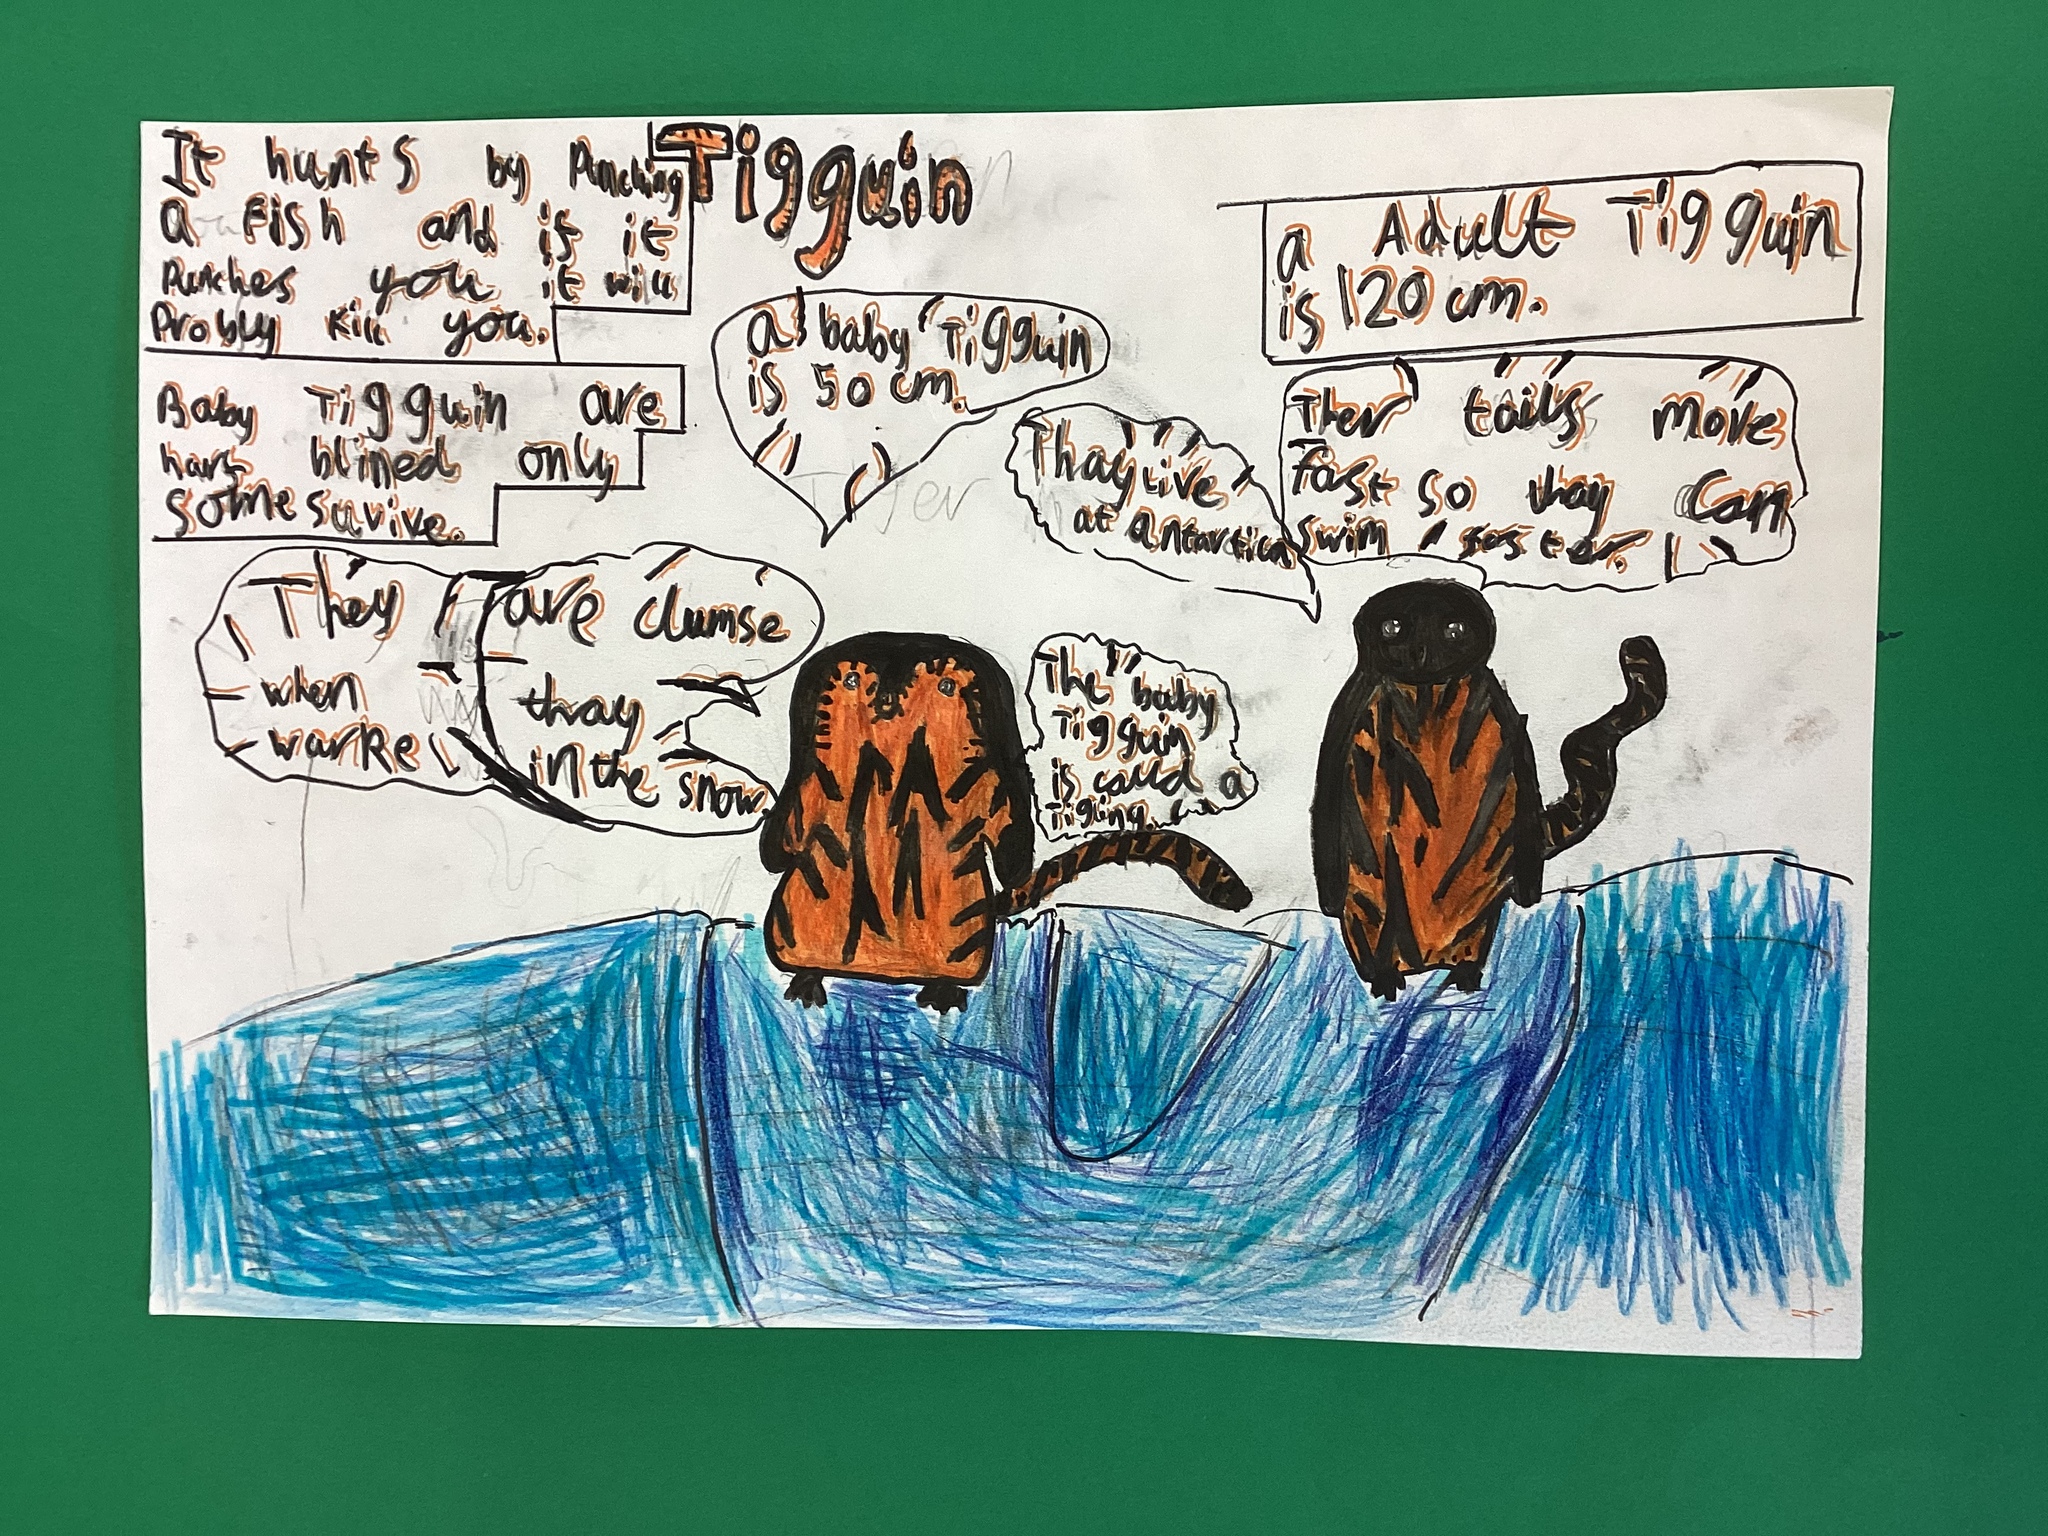 Tigguin
It hunts by Punching
a Fish and if it
Punches you it will
Probly kill you.
a Adult Tigguin
is 120 cm.
a baby Tigguin
is 50 cm.
Baby Tigguin are
harf blined only
some survive.
Thay live
at Antartica
Ther tails move
fast so thay can
swim faster.
They are clumse
when thay
warke in the snow.
The baby
Tigguin
is calld a
Tigling.